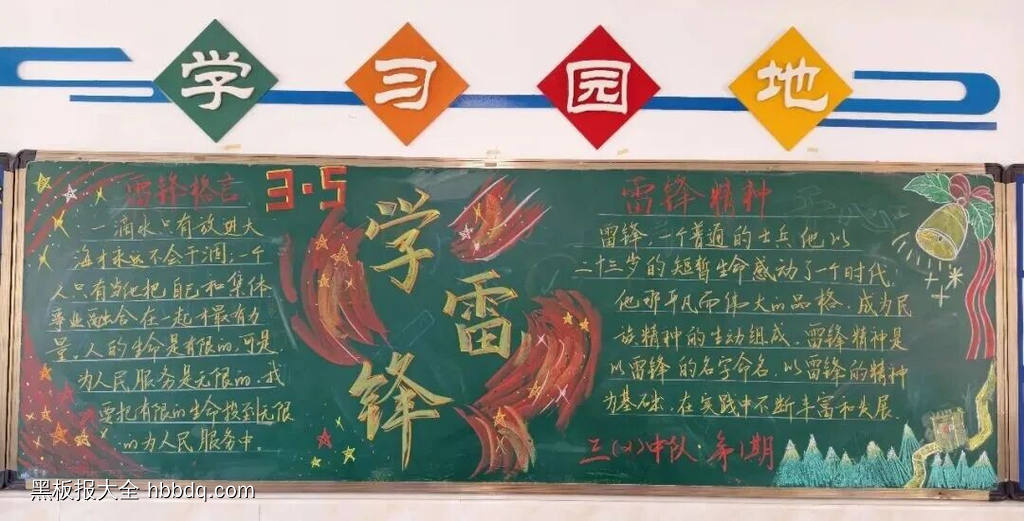 学习园地
雷锋格言
一滴水只有放进大
海才永远不会干涸,一个
人只有当他把自己和集体
事业融合在一起才最有力
量,人的生命是有限的,可是,
为人民服务是无限的,我
要把有限的生命投到无限
的为人民服务中.
3·5
学雷锋
雷锋精神
雷锋,一个普通的士兵,他以
二十三岁的短暂生命感动了一个时代,
他那平凡而伟大的品格,成为民
族精神的生动组成,雷锋精神是
以雷锋的名字命名,以雷锋的精神
为基础,在实践中不断丰富和发展.
三(2)中队 第1期
黑板报大全 hbbdq.com